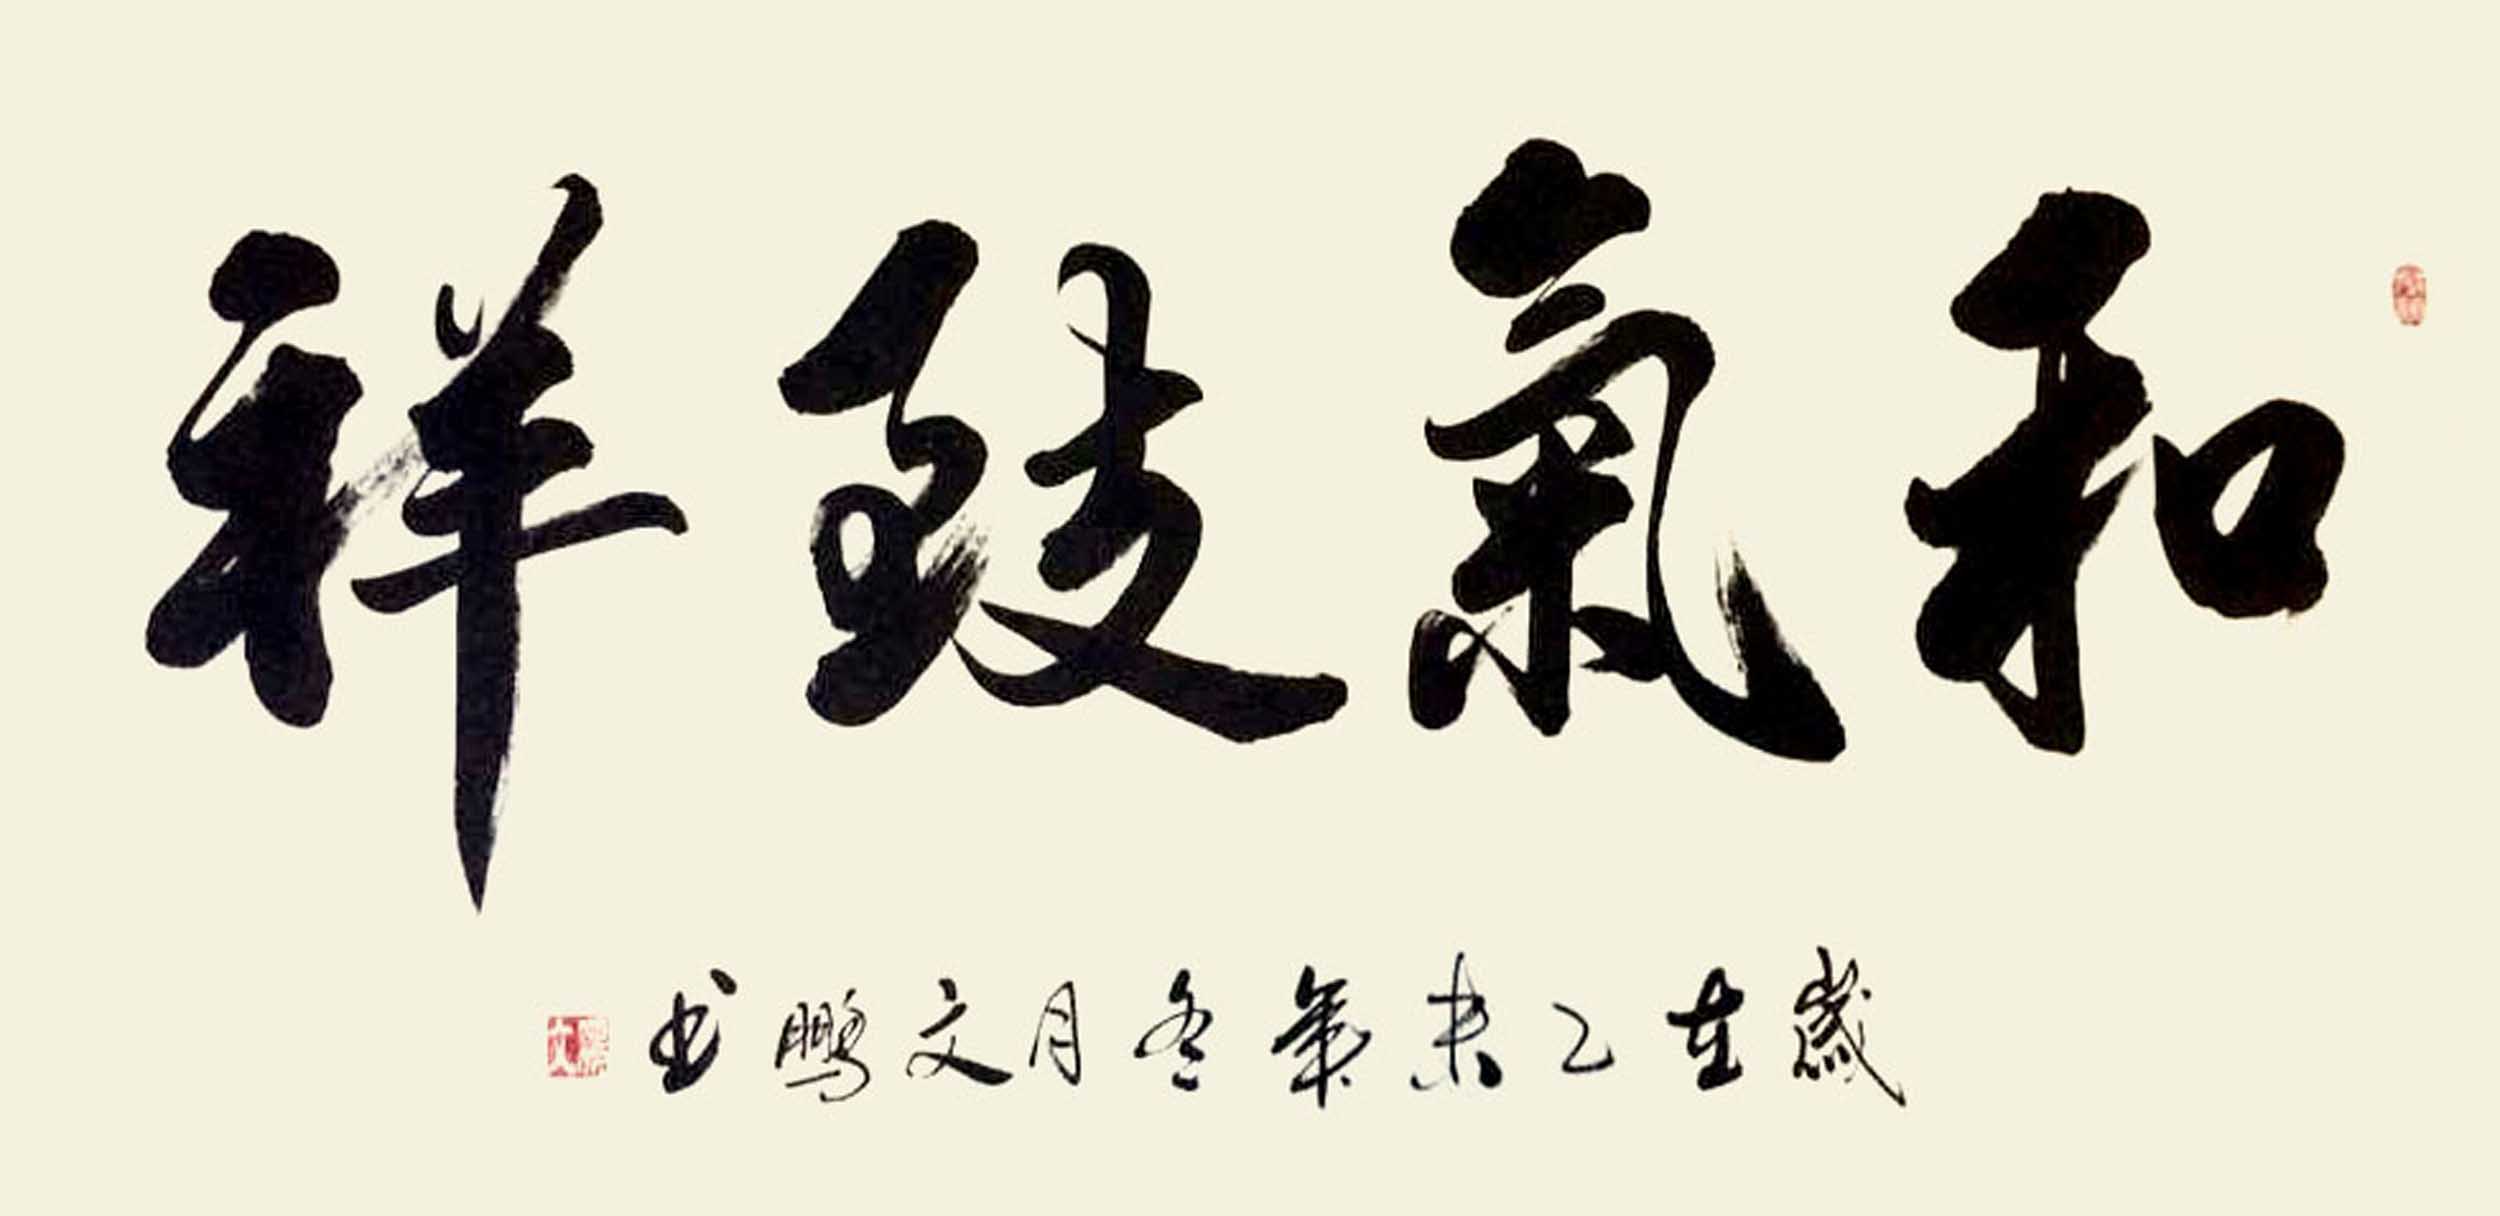 和氣致祥
歲在乙未年冬月文鵬书